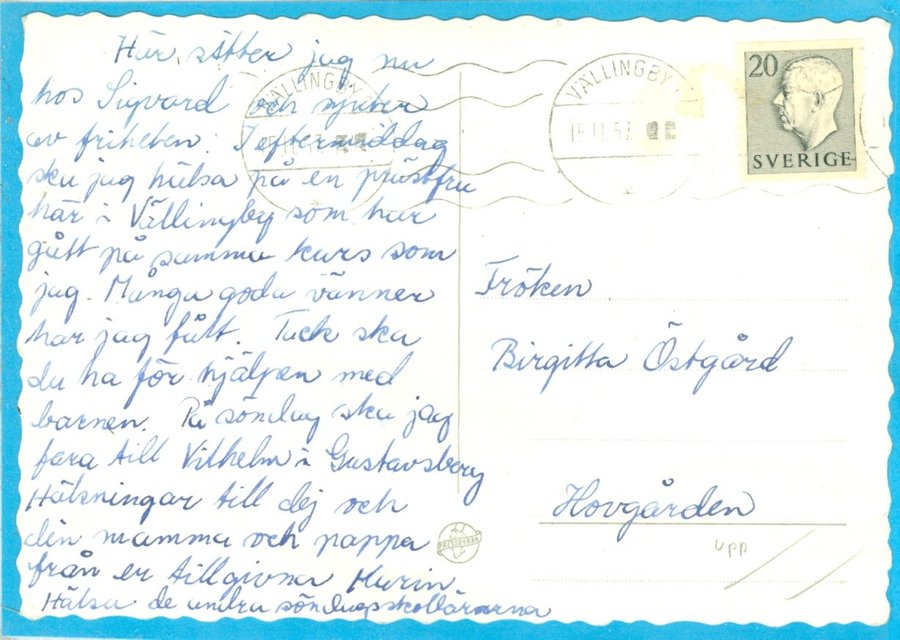 Här sitter jag nu
hos Sigvard och njuter
av friheten. I eftermiddag
ska jag hälsa på en prästfru
här i Vällingby som har
gått på samma kurs som
jag. Många goda vänner
har jag fått. Tack ska
du ha för hjälpen med
barnen. På söndag ska jag
fara till Vilhelm i Gustavsberg
Hälsningar till dej och
din mamma och pappa
från er tillgivna Karin
Hälsa de andra söndagsskollärarna
VÄLLINGBY
VÄLLINGBY 1
15.11.57
20
SVERIGE
Fröken
Birgitta Östgård
Hovgården
UPP
PRESSBYRÅN